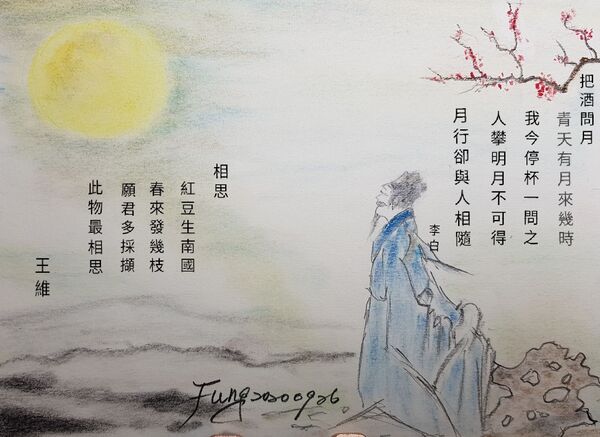 把酒問月
青天有月來幾時
我今停杯一問之
人攀明月不可得
月行卻與人相隨
李白
相思
紅豆生南國
春來發幾枝
願君多採擷
此物最相思
王維
Fung20200926